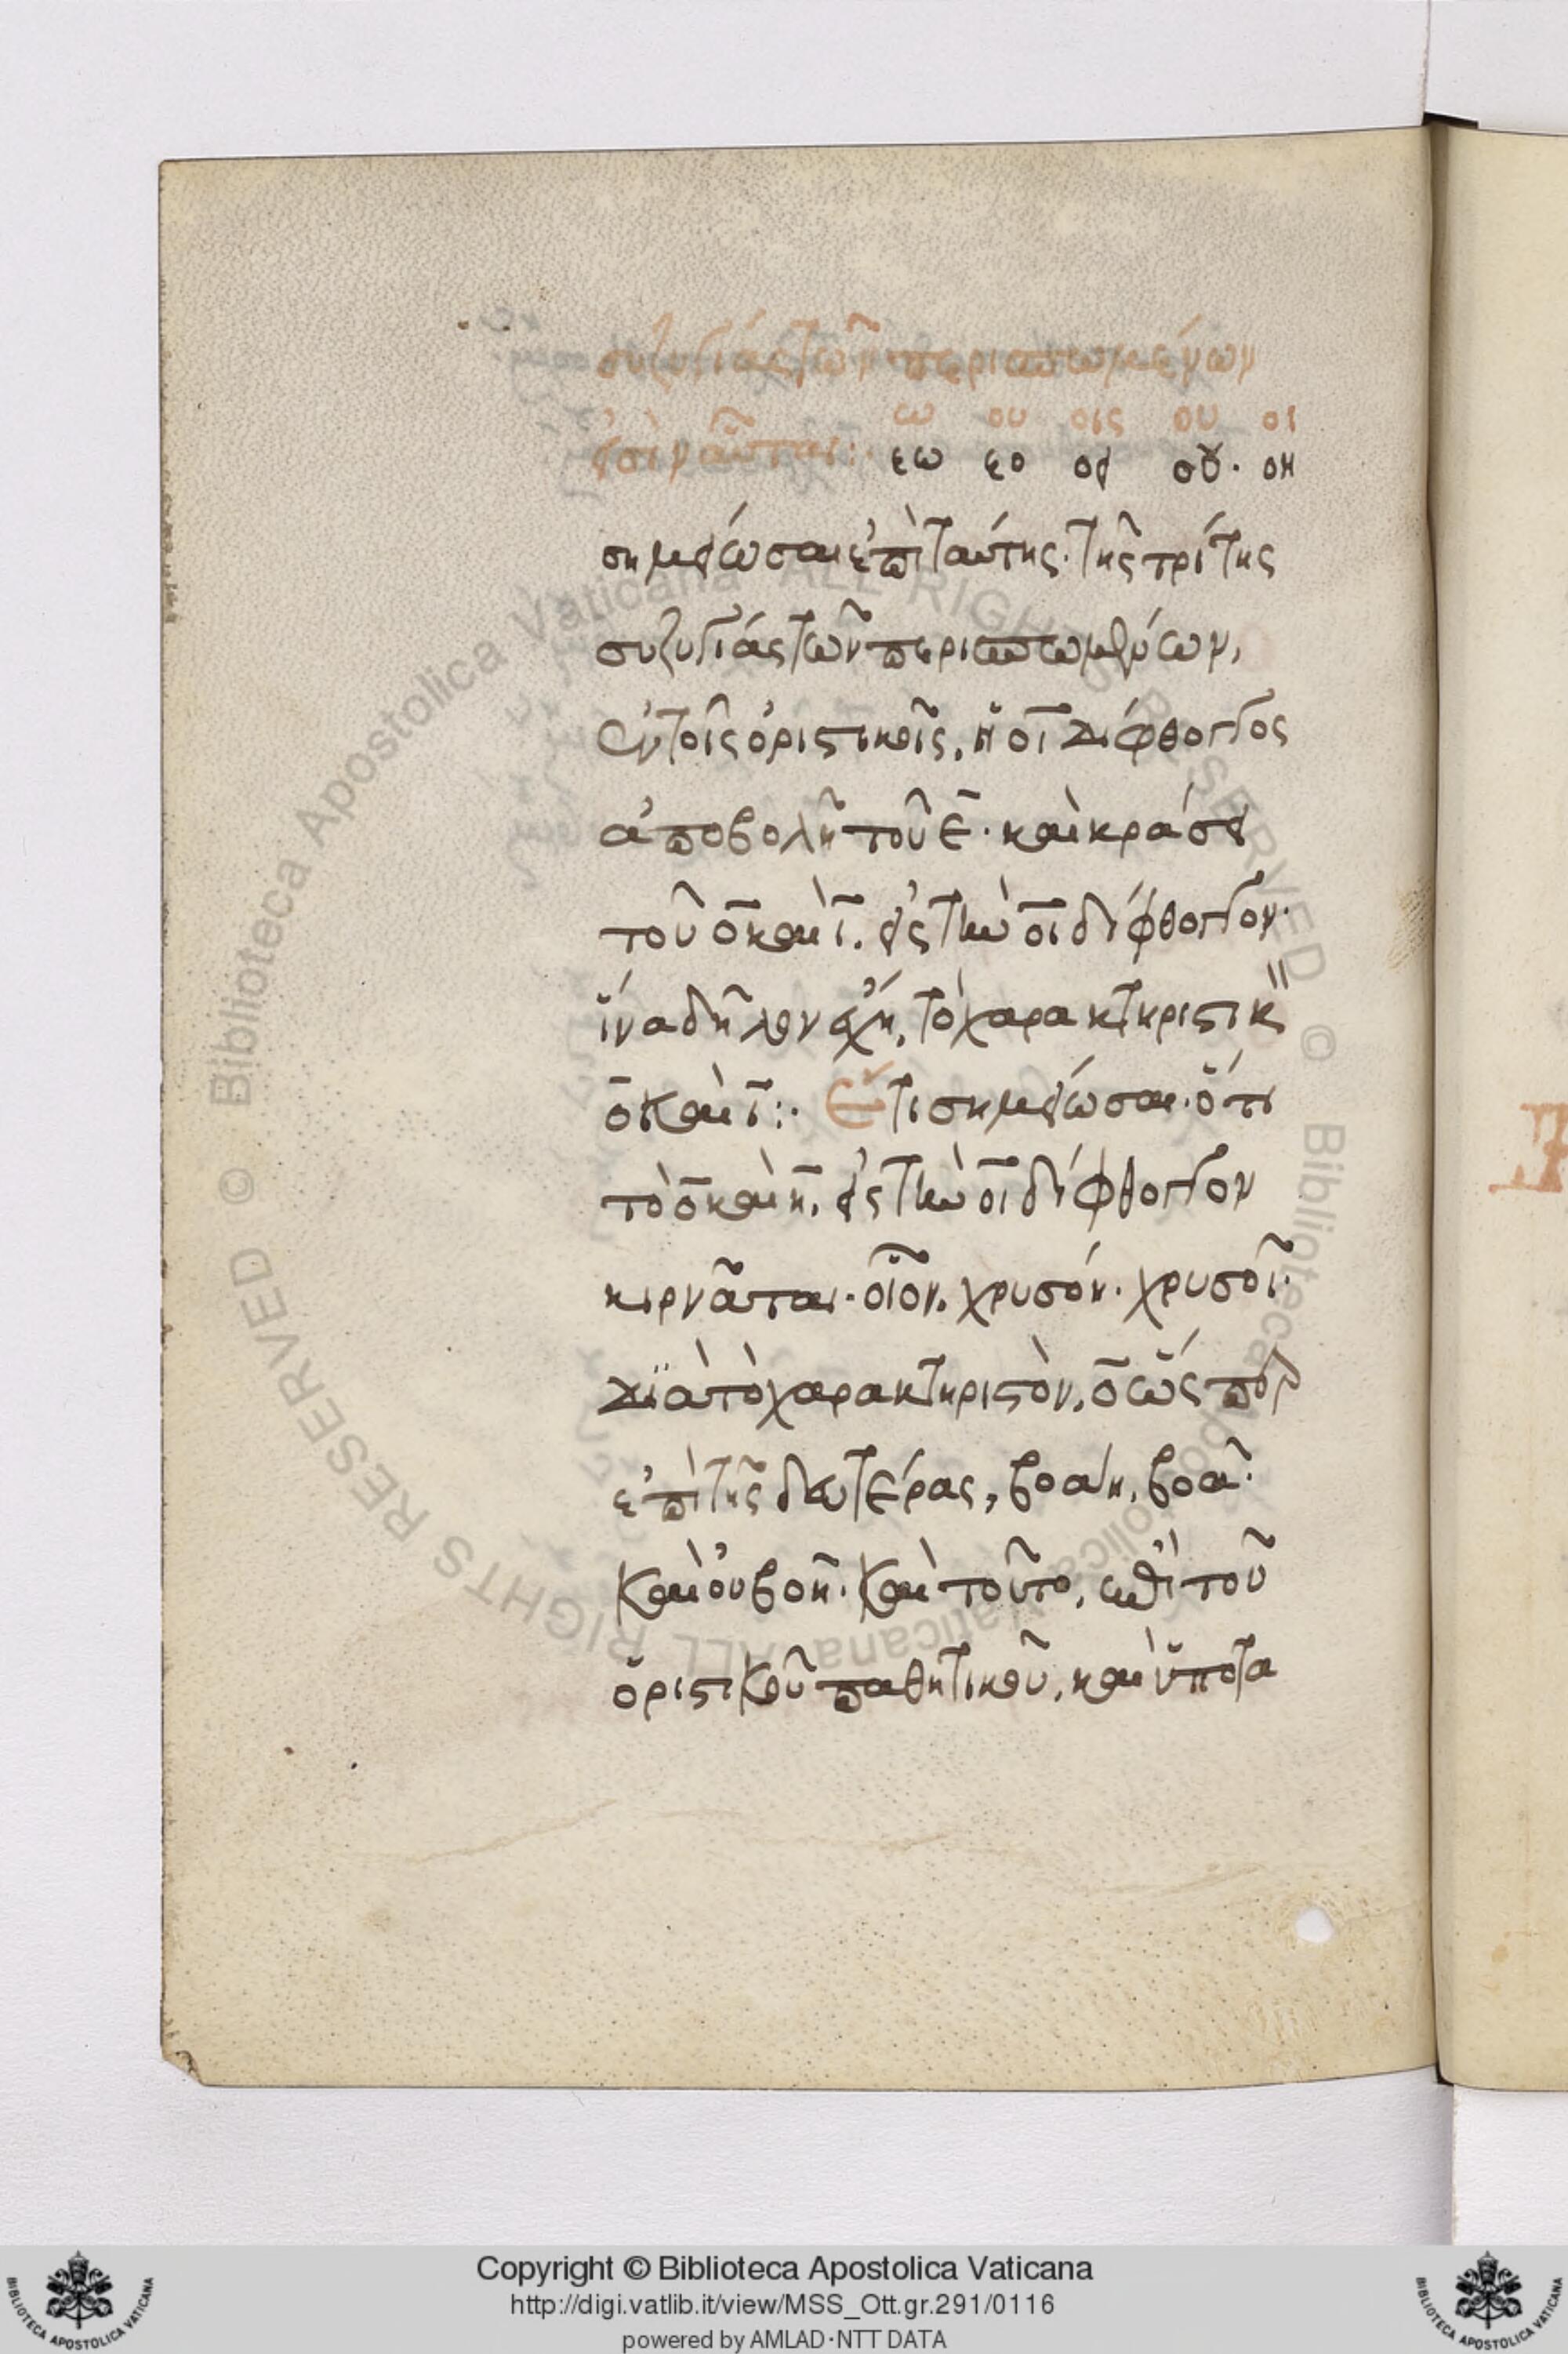 συζυγίας τῶν περισπωμένων
εἰσὶν αὗται:· ω ου οις ου οι
εω εο οει οου· οη
σημείωσαι ἐπὶ ταύτης· τῆς τρίτης
συζυγίας τῶν περισπωμένων,
ἐν τοῖς ὁριστικοῖς, ἡ οι δίφθογγος
ἀποβολῆ τοῦ ε̄· καὶ κράσει
τοῦ ο̄ καὶ ῑ. εἰς τὴν οι δίφθογγον·
ἵνα δῆλον ἔχη, τὸ χαρακτηριστικ
ο̄ καὶ ῑ:· Ἔτι σημείωσαι· ὅτι
τὸ ο̄ καὶ η̄, εἰς τὴν οι δίφθογγον
κιρνᾶται· οἷον, χρυσόη· χρυσοῖ·
διὰ τὸ χαρακτηριστὸν, ο̄ ὥσπερ
ἐπὶ τῆς δευτέρας, βοάη, βοᾶ·
καὶ οὐ βοῆ· καὶ τοῦτο, ἐπὶ τοῦ
ὁριστικοῦ παθητικοῦ, καὶ ὑποτα
Copyright © Biblioteca Apostolica Vaticana
http://digi.vatlib.it/view/MSS_Ott.gr.291/0116
powered by AMLAD·NTT DATA